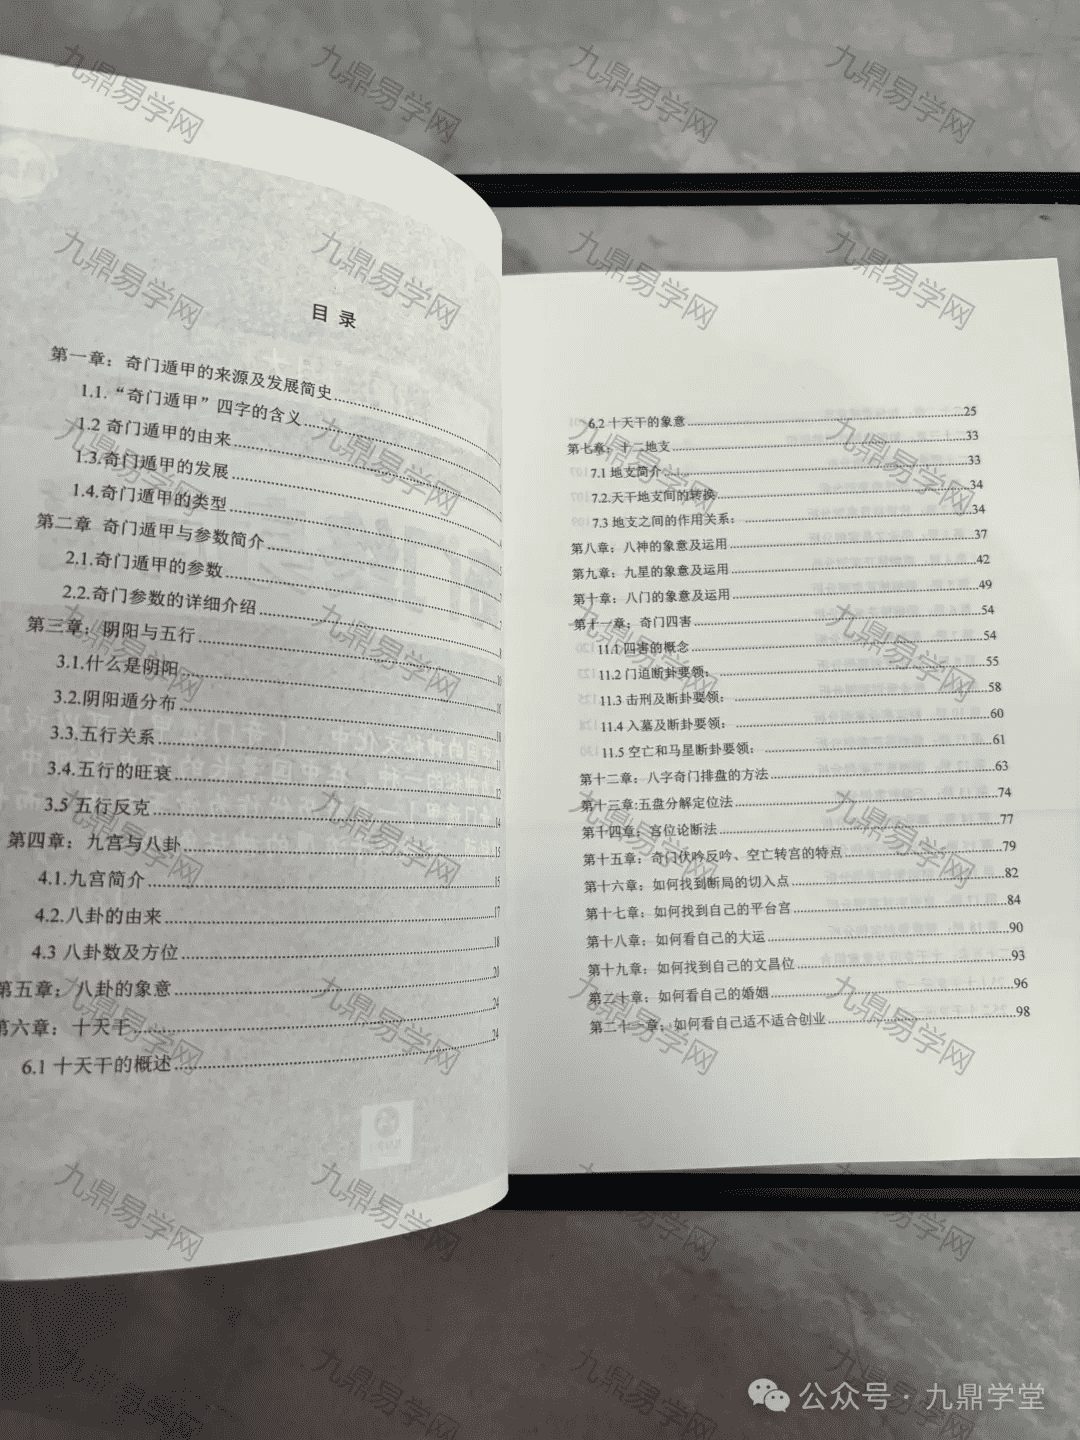 目 录
第一章：奇门遁甲的来源及发展简史
1.1.“奇门遁甲”四字的含义
1.2 奇门遁甲的由来
1.3.奇门遁甲的发展
1.4.奇门遁甲的类型
第二章 奇门遁甲与参数简介
2.1.奇门遁甲的参数
2.2.奇门参数的详细介绍
第三章：阴阳与五行
3.1.什么是阴阳
3.2.阴阳遁分布
3.3.五行关系
3.4.五行的旺衰
3.5 五行反克
第四章：九宫与八卦
4.1.九宫简介 15
4.2.八卦的由来 17
4.3 八卦数及方位 18
第五章：八卦的象意 20
第六章：十天干 24
6.1 十天干的概述 24
6.2 十天干的象意 25
第七章：十二地支 33
7.1 地支简介 33
7.2.天干地支间的转换 34
7.3 地支之间的作用关系： 34
第八章：八神的象意及运用 37
第九章：九星的象意及运用 42
第十章：八门的象意及运用 49
第十一章：奇门四害 54
11.1 四害的概念 54
11.2 门迫断卦要领： 55
11.3 击刑及断卦要领： 58
11.4 入墓及断卦要领： 60
11.5 空亡和马星断卦要领： 61
第十二章：八字奇门排盘的方法 63
第十三章:五盘分解定位法 74
第十四章：宫位论断法 77
第十五章：奇门伏吟反吟、空亡转宫的特点 79
第十六章：如何找到断局的切入点 82
第十七章：如何找到自己的平台宫 84
第十八章：如何看自己的大运 90
第十九章：如何找到自己的文昌位 93
第二十章：如何看自己的婚姻 96
第二十一章：如何看自己适不适合创业 98
九鼎易学网
公众号 · 九鼎学堂